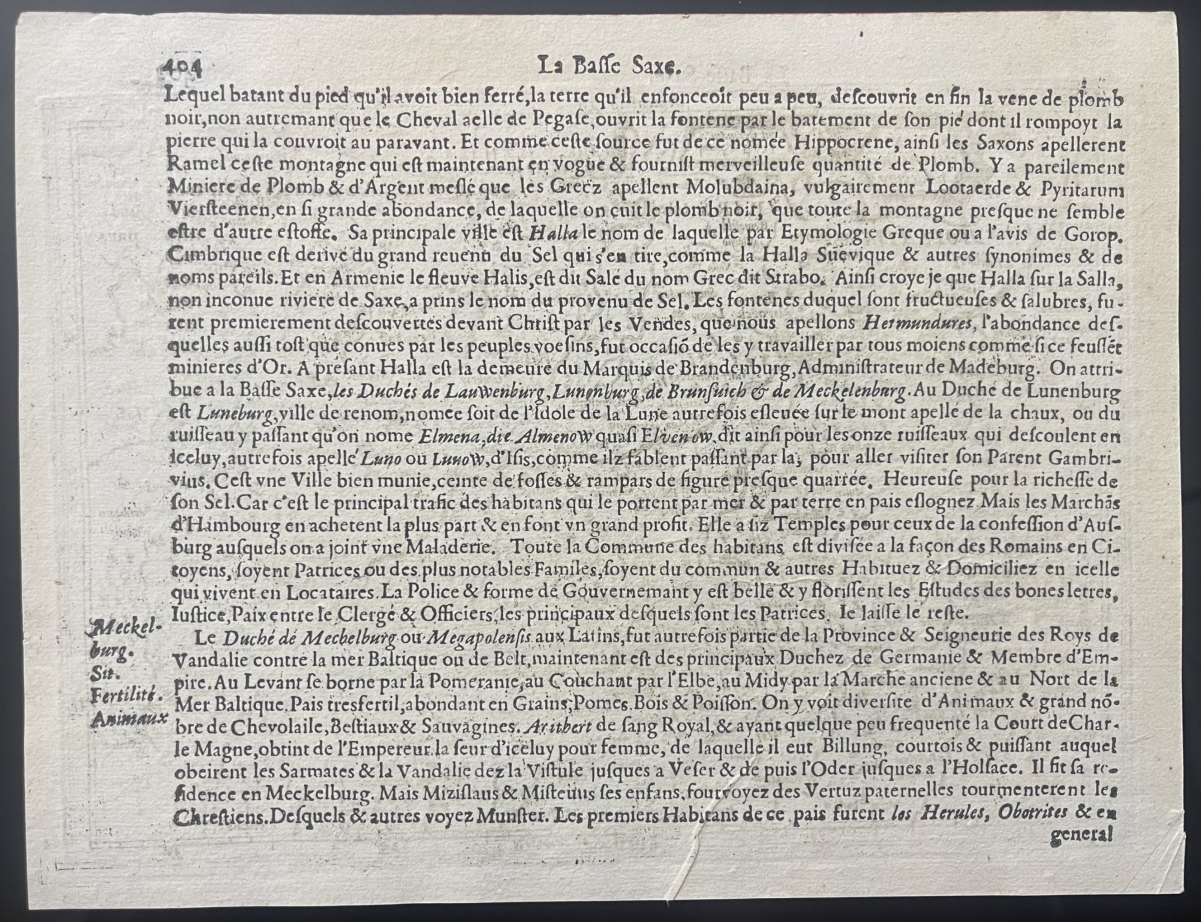 404
La Baſſe Saxe.
Lequel batant du pied qu'il avoit bien ferré, la terre qu'il enfonceoit peu a peu, deſcouvrit en fin la vene de plomb
noir, non autremant que le Cheval aelle de Pegaſe, ouvrit la fontene par le batement de ſon pie dont il rompoyt la
pierre qui la couvroit au paravant. Et comme ceſte ſource fut de ce nomée Hippocrene, ainſi les Saxons apellerent
Ramel ceſte montagne qui eſt maintenant en vogue & fourniſt merveilleuſe quantité de Plomb. Y a pareilement
Miniere de Plomb & d'Argent meſlé que les Greez apellent Molubdaina, vulgairement Lootaerde & Pyritarum
Vierſteenen, en ſi grande abondance, de laquelle on cuit le plomb noir, que toute la montagne preſque ne ſemble
eſtre d'autre eſtoffe. Sa principale ville eſt Halla le nom de laquelle par Etymologie Greque ou a l'avis de Gorop.
Cimbrique eſt derivé du grand reuenu du Sel qui s'en tire, comme la Halla Suevique & autres ſynonimes & de
noms pareils. Et en Armenie le fleuve Halis, eſt dit Salé du nom Grec dit Strabo. Ainſi croye je que Halla ſur la Salla,
non inconue riviere de Saxe, a prins le nom du provenu de Sel. Les fontenes duquel ſont fructueuſes & ſalubres, fu-
rent premierement deſcouvertes devant Chriſt par les Vendes, que nous apellons Hermundures, l'abondance deſ-
quelles auſſi toſt que conues par les peuples voeſins, fut occaſiõ de les y travailler par tous moiens comme ſi ce feuſſẽt
minieres d'Or. A preſant Halla eſt la demeure du Marquis de Brandenburg, Adminiſtrateur de Madeburg. On attri-
bue a la Baſſe Saxe, les Duchés de Lauwenburg, Lunenburg, de Brunſuich & de Meckelenburg. Au Duché de Lunenburg
eſt Luneburg, ville de renom, nomée ſoit de l'Idole de la Lune autrefois eſleuée ſur le mont apelé de la chaux, ou du
ruiſſeau y paſſant qu'on nome Elmena, die Almenow quaſi Elvenow, dit ainſi pour les onze ruiſſeaux qui deſcoulent en
iceluy, autrefois apellé Luno ou Lunow, d'Iſis, comme ilz fablent paſſant par la, pour aller viſiter ſon Parent Gambri-
vius. C'eſt vne Ville bien munie, ceinte de foſſes & rampars de figure preſque quarrée. Heureuſe pour la richeſſe de
ſon Sel. Car c'eſt le principal trafic des habitans qui le portent par mer & par terre en pais eſlognez Mais les Marchãs
d'Hambourg en achetent la plus part & en font vn grand profit. Elle a ſiz Temples pour ceux de la confeſſion d'Auſ-
burg auſquels on a joint vne Maladerie. Toute la Commune des habitans eſt diviſée a la façon des Romains en Ci-
toyens, ſoyent Patrices ou des plus notables Familes, ſoyent du commun & autres Habituez & Domiciliez en icelle
qui vivent en Locataires. La Police & forme de Gouvernemant y eſt belle & y floriſſent les Eſtudes des bones letres,
Iuſtice, Paix entre le Clergé & Officiers, les principaux deſquels ſont les Patrices. Ie laiſſe le reſte.
Meckel-
burg.
Sit.
Fertilité.
Animaux
Le Duché de Mechelburg ou Megapolenſis aux Latins, fut autrefois partie de la Province & Seigneurie des Roys de
Vandalie contre la mer Baltique ou de Belt, maintenant eſt des principaux Duchez de Germanie & Membre d'Em-
pire. Au Levant ſe borne par la Pomeranie, au Couchant par l'Elbe, au Midy par la Marche anciene & au Nort de la
Mer Baltique. Pais tresfertil, abondant en Grains, Pomes, Bois & Poiſſon. On y voit diverſite d'Animaux & grand nõ-
bre de Chevolaile, Beſtiaux & Sauvagines. Aritbert de ſang Royal, & ayant quelque peu frequenté la Court de Char-
le Magne, obtint de l'Empereur la ſeur d'iceluy pour femme, de laquelle il eut Billung, courtois & puiſſant auquel
obeirent les Sarmates & la Vandalie dez la Viſtule juſques a Veſer & de puis l'Oder juſques a l'Holſace. Il fit ſa re-
ſidence en Meckelburg. Mais Miziſlaus & Miſteuus ſes enfans, fourvoyez des Vertuz paternelles tourmenterent les
Chreſtiens. Deſquels & autres voyez Munſter. Les premiers Habitans de ce pais furent les Herules, Obotrites & en
general